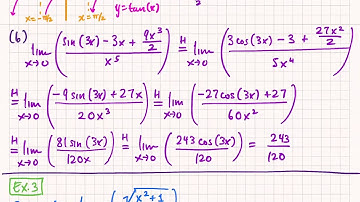 x=-π/2 x=π/2 y=tan(x) 2
(6) lim x→0 ( (sin(3x) - 3x + 9x³/2) / x⁵ ) =ᴴ lim x→0 ( (3cos(3x) - 3 + 27x²/2) / 5x⁴ )
=ᴴ lim x→0 ( (-9sin(3x) + 27x) / 20x³ ) =ᴴ lim x→0 ( (-27cos(3x) + 27) / 60x² )
=ᴴ lim x→0 ( 81sin(3x) / 120x ) =ᴴ lim x→0 ( 243cos(3x) / 120 ) = 243/120
EX.3
√x²+1